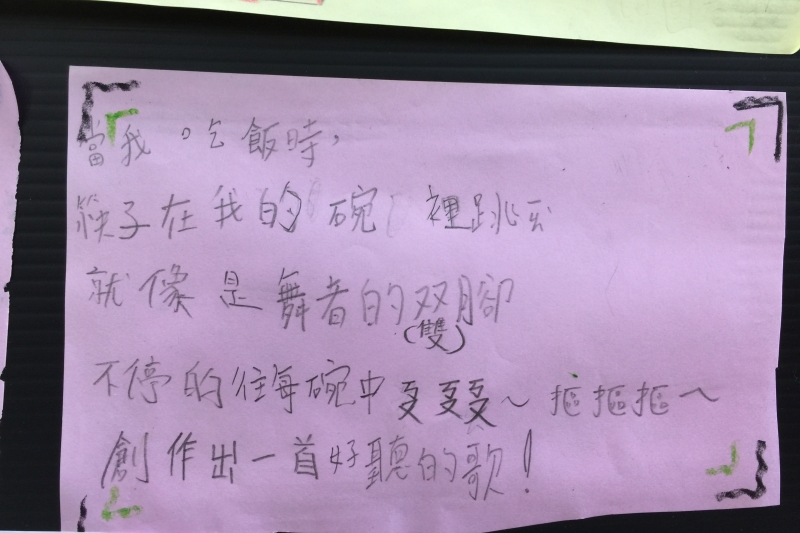 當我吃飯時，
筷子在我的碗裡跳
就像是舞者的双腳
(雙)
不停的往每碗中叐叐叐～摳摳摳～
創作出一首好聽的歌！